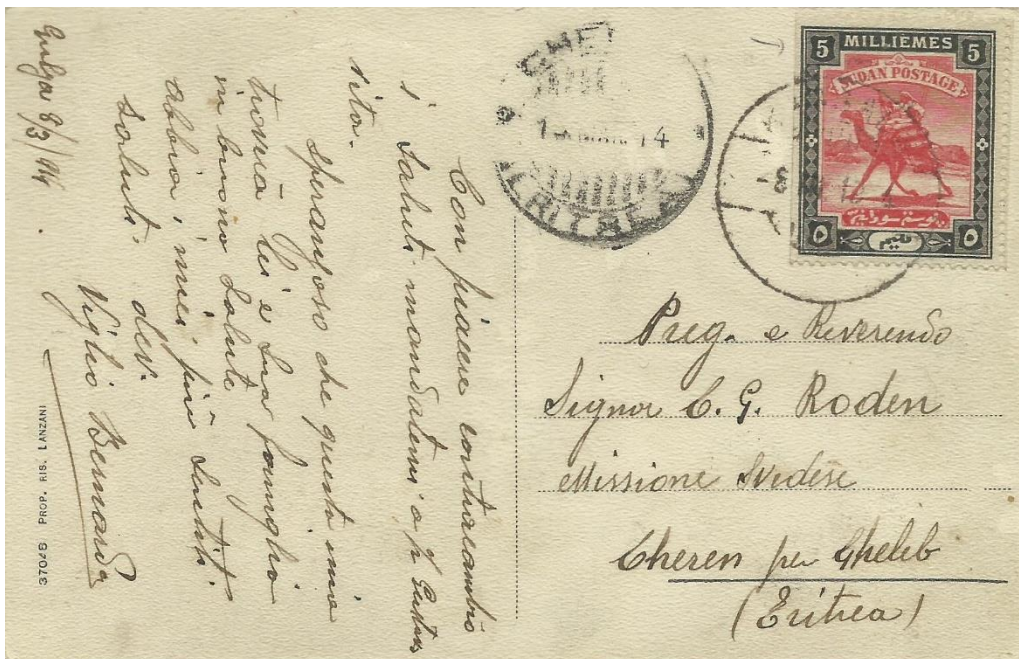 5 MILLIÈMES 5
SUDAN POSTAGE
بوستة سودانية
٥ مليم ٥
ERITREA
Preg. e Reverendo
Signor C. G. Roden
Missione Svedese
Cheren per Gheleb
(Eritrea)
Con piacere contracambio
i saluti mandatemi a
sita.
Speranzoso che questa mia
troverà lei e sua famiglia
in buona salute
abbia i miei più sentiti
saluti dev.
Viglio Bernardo
8/3/914
37048 PROP. RIS. LANZANI